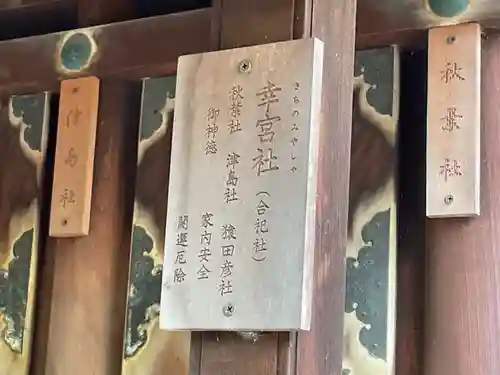 幸宮社（合祀社）
さちのみやしゃ
秋葉社 津島社 猿田彦社
御神徳 家内安全
開運厄除
秋葉社
津島社